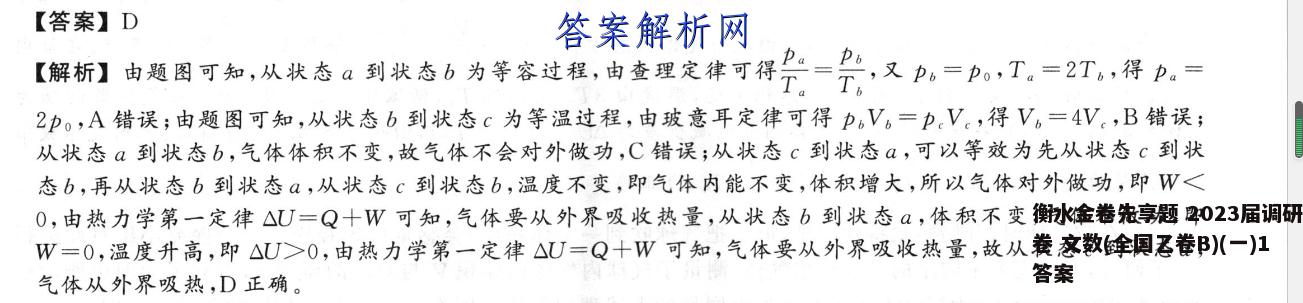 【答案】D
答案解析网
【解析】由题图可知,从状态 a 到状态 b 为等容过程,由查理定律可得 p_a/T_a = p_b/T_b,又 p_b=p_0,T_a=2T_b,得 p_a=
2p_0,A 错误;由题图可知,从状态 b 到状态 c 为等温过程,由玻意耳定律可得 p_bV_b=p_cV_c,得 V_b=4V_c,B 错误;
从状态 a 到状态 b,气体体积不变,故气体不会对外做功,C 错误;从状态 c 到状态 a,可以等效为先从状态 c 到状
态 b,再从状态 b 到状态 a,从状态 c 到状态 b,温度不变,即气体内能不变,体积增大,所以气体对外做功,即 W<
0,由热力学第一定律 ΔU=Q+W 可知,气体要从外界吸收热量,从状态 b 到状态 a,体积不变
W=0,温度升高,即 ΔU>0,由热力学第一定律 ΔU=Q+W 可知,气体要从外界吸收热量,故从
气体从外界吸热,D 正确。
衡水金卷先享题 2023届调研
卷 文数(全国乙卷B)(一)1
答案